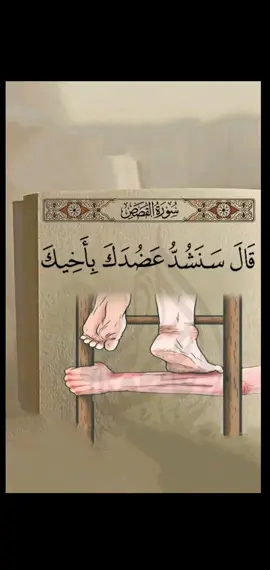 سُورَةُ القَصَصِ
قَالَ سَنَشُدُّ عَضُدَكَ بِأَخِيكَ